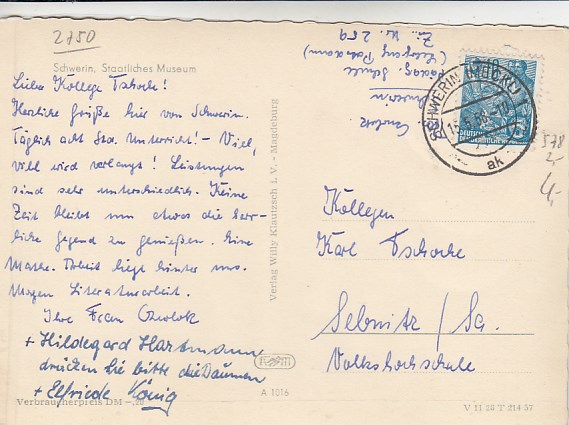 2750
Schwerin, Staatliches Museum
Liebe Kollege Tschoche!
Herzliche Grüße hier von Schwerin.
Täglich acht Std. Unterricht! – Viel,
viel wird verlangt! Leistungen
sind sehr unterschiedlich. Keine
Zeit bleibt um etwas die herr-
liche Gegend zu genießen. Eine
Mathe. Arbeit liegt hinter uns.
Morgen Literaturarbeit.
Ihre Frau
+ Hildegard Hartmann
drücken Sie bitte die Daumen
+ Elfriede König
Verbraucherpreis DM -,20
Verlag Willy Klautzsch i. V. - Magdeburg
A 1016
Schwerin
Pädag. Schule
Zi. Nr. 259
SCHWERIN (MECKL) 1
ak
578
2,-
4,-
Kollegen
Karl Tschoche
Sebnitz / Sa.
Volkshochschule
V 11 28 T 214 57